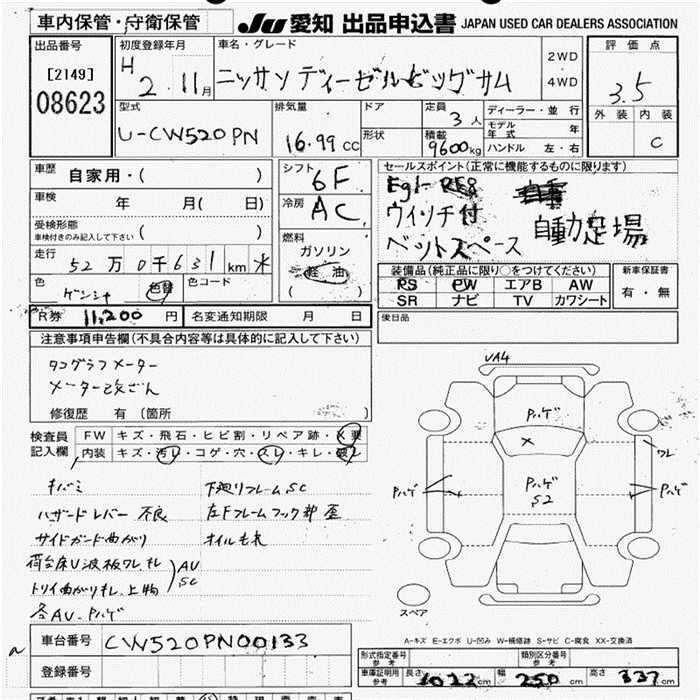 車内保管・守衛保管 JU 愛知 出品申込書 JAPAN USED CAR DEALERS ASSOCIATION
出品番号 初度登録年月 車名・グレード 評価点
[2149] H 2.11月 ニッサンディーゼルビッグサム 2WD 3.5
08623 4WD 外装 内装
型式 排気量 ドア 定員 3人 ディーラー・並行 C
U-CW520PN 16.99cc 形状 積載 9600kg モデル年式 年
ハンドル 左・右
車歴 自家用・( ) シフト 6F セールスポイント(正常に機能するものに限ります)
車検 年 月( 日) 冷房 AC Egl- RE8
受検形態 ウィンチ付 自動足場
車検付きのみ記入して下さい ( ) 燃料 ベットスペース
走行 52万0千631km ガソリン
軽油
( )
色 ゲンシャ 色替 色コード
装備品(純正品に限り○をつけてください) 新車保証書
PS PW エアB AW 有・無
SR ナビ TV カワシート
R券 11,200円 名変通知期限 月 日 後日品
注意事項申告欄(不具合内容等は具体的に記入して下さい)
タコグラフメーター
メーター改ざん
修復歴 有 (箇所 )
検査員 FW キズ・飛石・ヒビ割・リペア跡・X要
記入欄 内装 キズ・汚レ・コゲ・穴・スレ・キレ・破レ
キバミ 下廻りフレームSC
ハザードレバー不良 左Fフレームフック部歪
サイドガード曲がり オイルもれ
荷台床U波板ワレ, キレ AU
トリイ曲がりキレ, 上物 SC
各AU, Pハゲ
UA4
Pハゲ
X
ワレ
Pハゲ Pハゲ Pハゲ
S2
スペア
A-キズ E-エクボ U-凹み W-補修跡 S-サビ C-腐食 XX-交換済
車台番号 CW520PN00133
登録番号
形式指定番号 参考 類別区分番号 参考
車庫証明用 参考 長さ 1022cm 幅 250cm 高さ 337cm